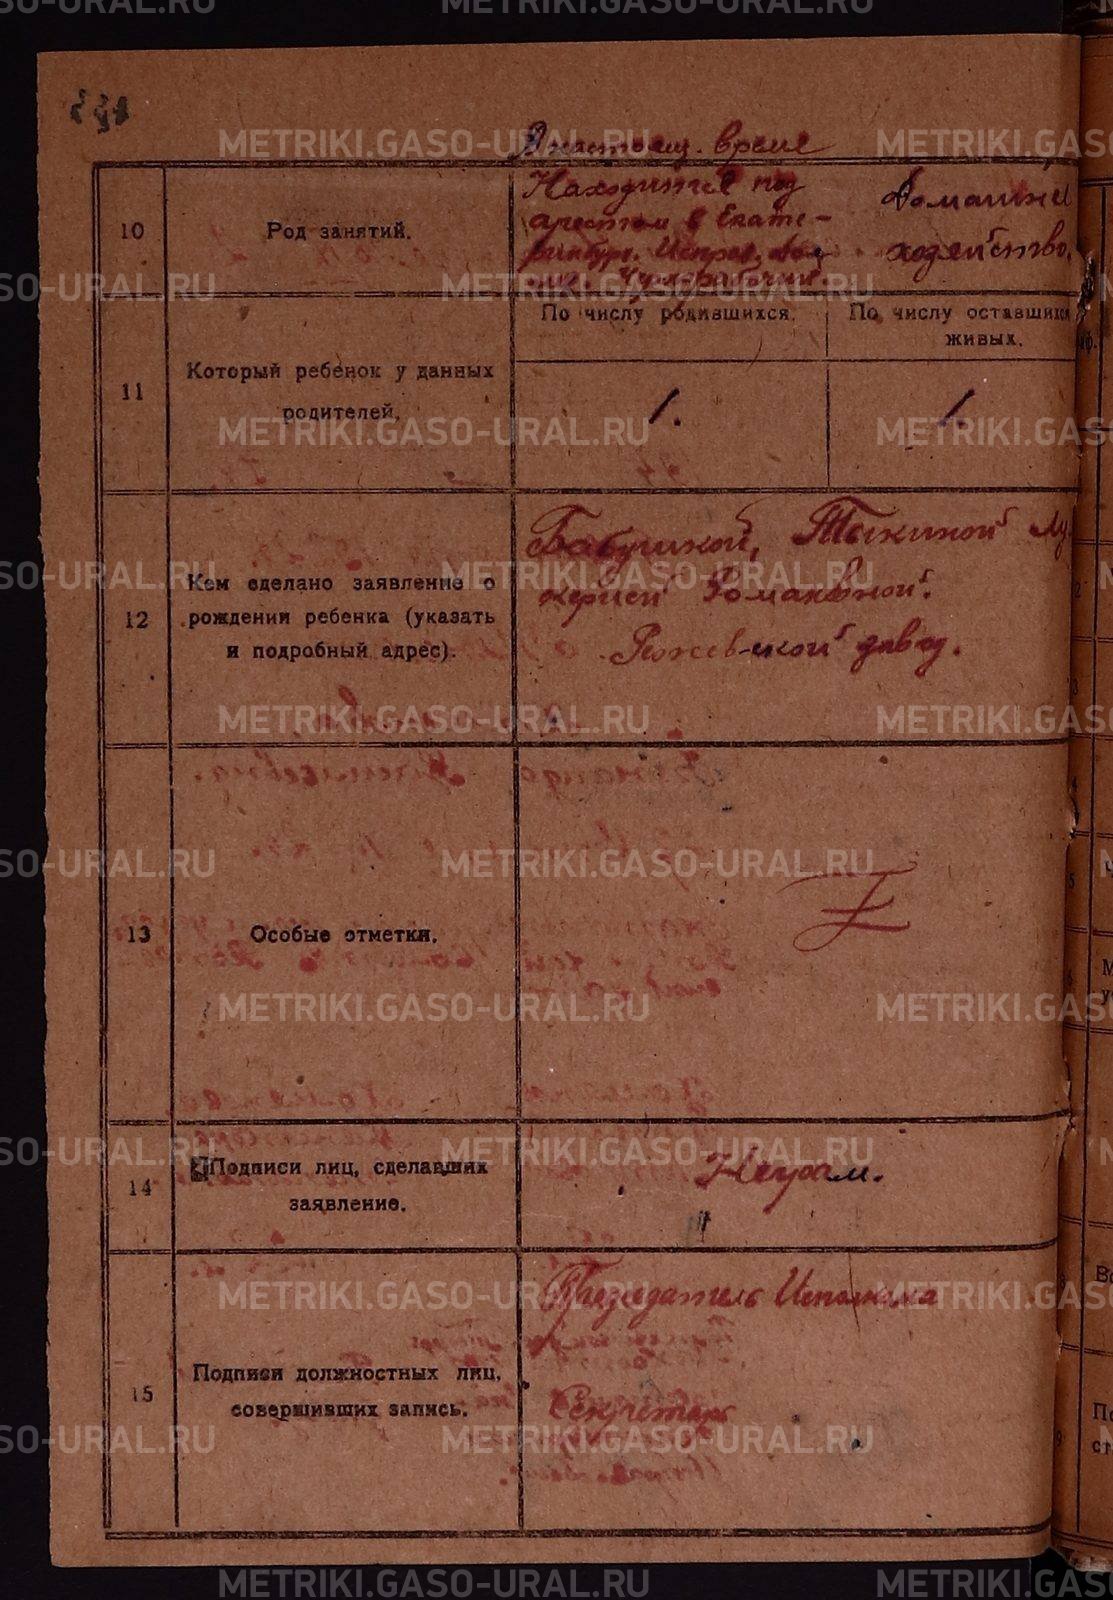 METRIKI.GASO-URAL.RU
В настоящ. время
10
Род занятий.
Находится под
арестом в Екате-
ринбург. Исправ.
Чернорабочий.
Домашнее
хозяйство.
11
Который ребенок у данных
родителей.
По числу родившихся.
По числу оставшихся
живых.
1.
1.
12
Кем сделано заявление о
рождении ребенка (указать
и подробный адрес).
Бабушкой, Тыкиной Лу-
керией Романовной.
завод.
13
Особые отметки.
14
Подписи лиц, сделавших
заявление.
Неграм.
15
Подписи должностных лиц,
совершивших запись.
Председатель Исполкома
Секретарь